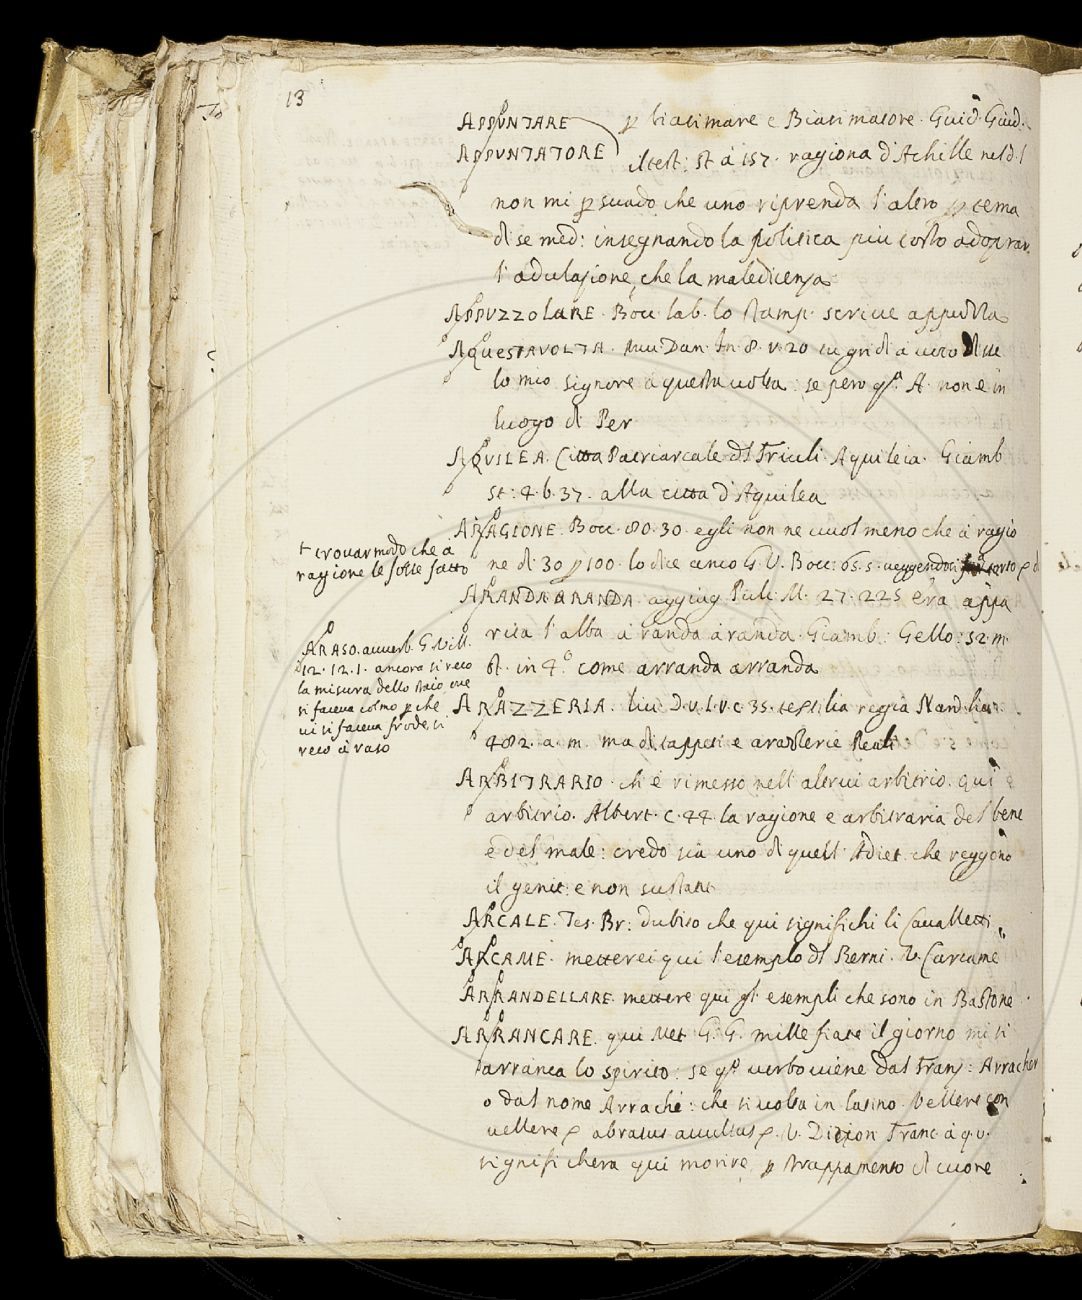 13
APPUNTARE p biasimare e Biasimatore. Guid. Giud.
APPUNTATORE il test: st à 157. ragiona d'Achille nel d. l
non mi p suado che uno riprenda l'altro p tema
di se med: insegnando la politica piu tosto adoprar
l'adulazione, che la maledicenza
APPUZZOLARE. Bocc. lab. lo stamp. scrive appuzza
AQUESTAVOLTA. Dan. In. 8. v. 20 tu gridi a voto disse
lo mio signore a questa volta: se pero qsta A non è in
luogo di Per
AQUILEA. Citta Patriarcale del Friuli. Aquileia. Giamb
st: 4. b. 37. alla citta d'Aquilea
ARAGIONE. Bocc. 80. 30. egli non ne vuol meno che à ragio
ne di 30 p 100. lo dice anco G. V. Bocc: 65. 5. veggendosi torto
+ trovar modo che a
ragione le fosse fatto
ARANDA ARANDA. aggiug. M. 27. 225 era appa
rita l'alba à randa à randa. Giamb: Gello: 52. m.
st. in 4° come arranda arranda
ARASO. avverb. G. Vill.
12. 12. 1. ancora si reco
la misura dello staio, che
si faceva colmo p che
vi si faceva frode, si
reco à raso
ARAZZERIA. Liv. D. 1. V. c. 35. reggia Nard.
482. a. m. ma di tappeti e arazzerie Reali
ARBITRARIO. ch' è rimesso nell' altrui arbitrio. qui è
arbitrio. Albert. c. 44. la ragione e arbitraria del bene
e del male: credo sia uno di quelli Adiet. che reggono
il genit: e non sustant
ARCALE. Tes. Br: dubito che qui significhi li Cavalletti
ARCAME. metterei qui l'esemplo del Berni. V. Carcame
ARRANDELLARE. mettere qui gl' esempli che sono in Bastone
ARRANCARE. qui Met. G. G. mille fiate il giorno mi si
arranca lo spirito: se qsto verbo viene dal Franz: Arracher
o dal nome Arraché: che si volta in latino. Vellere con
vellere abratus avulsus V. Dizion. Franc. a q. v.
significherà qui morire, p strappamento di cuore